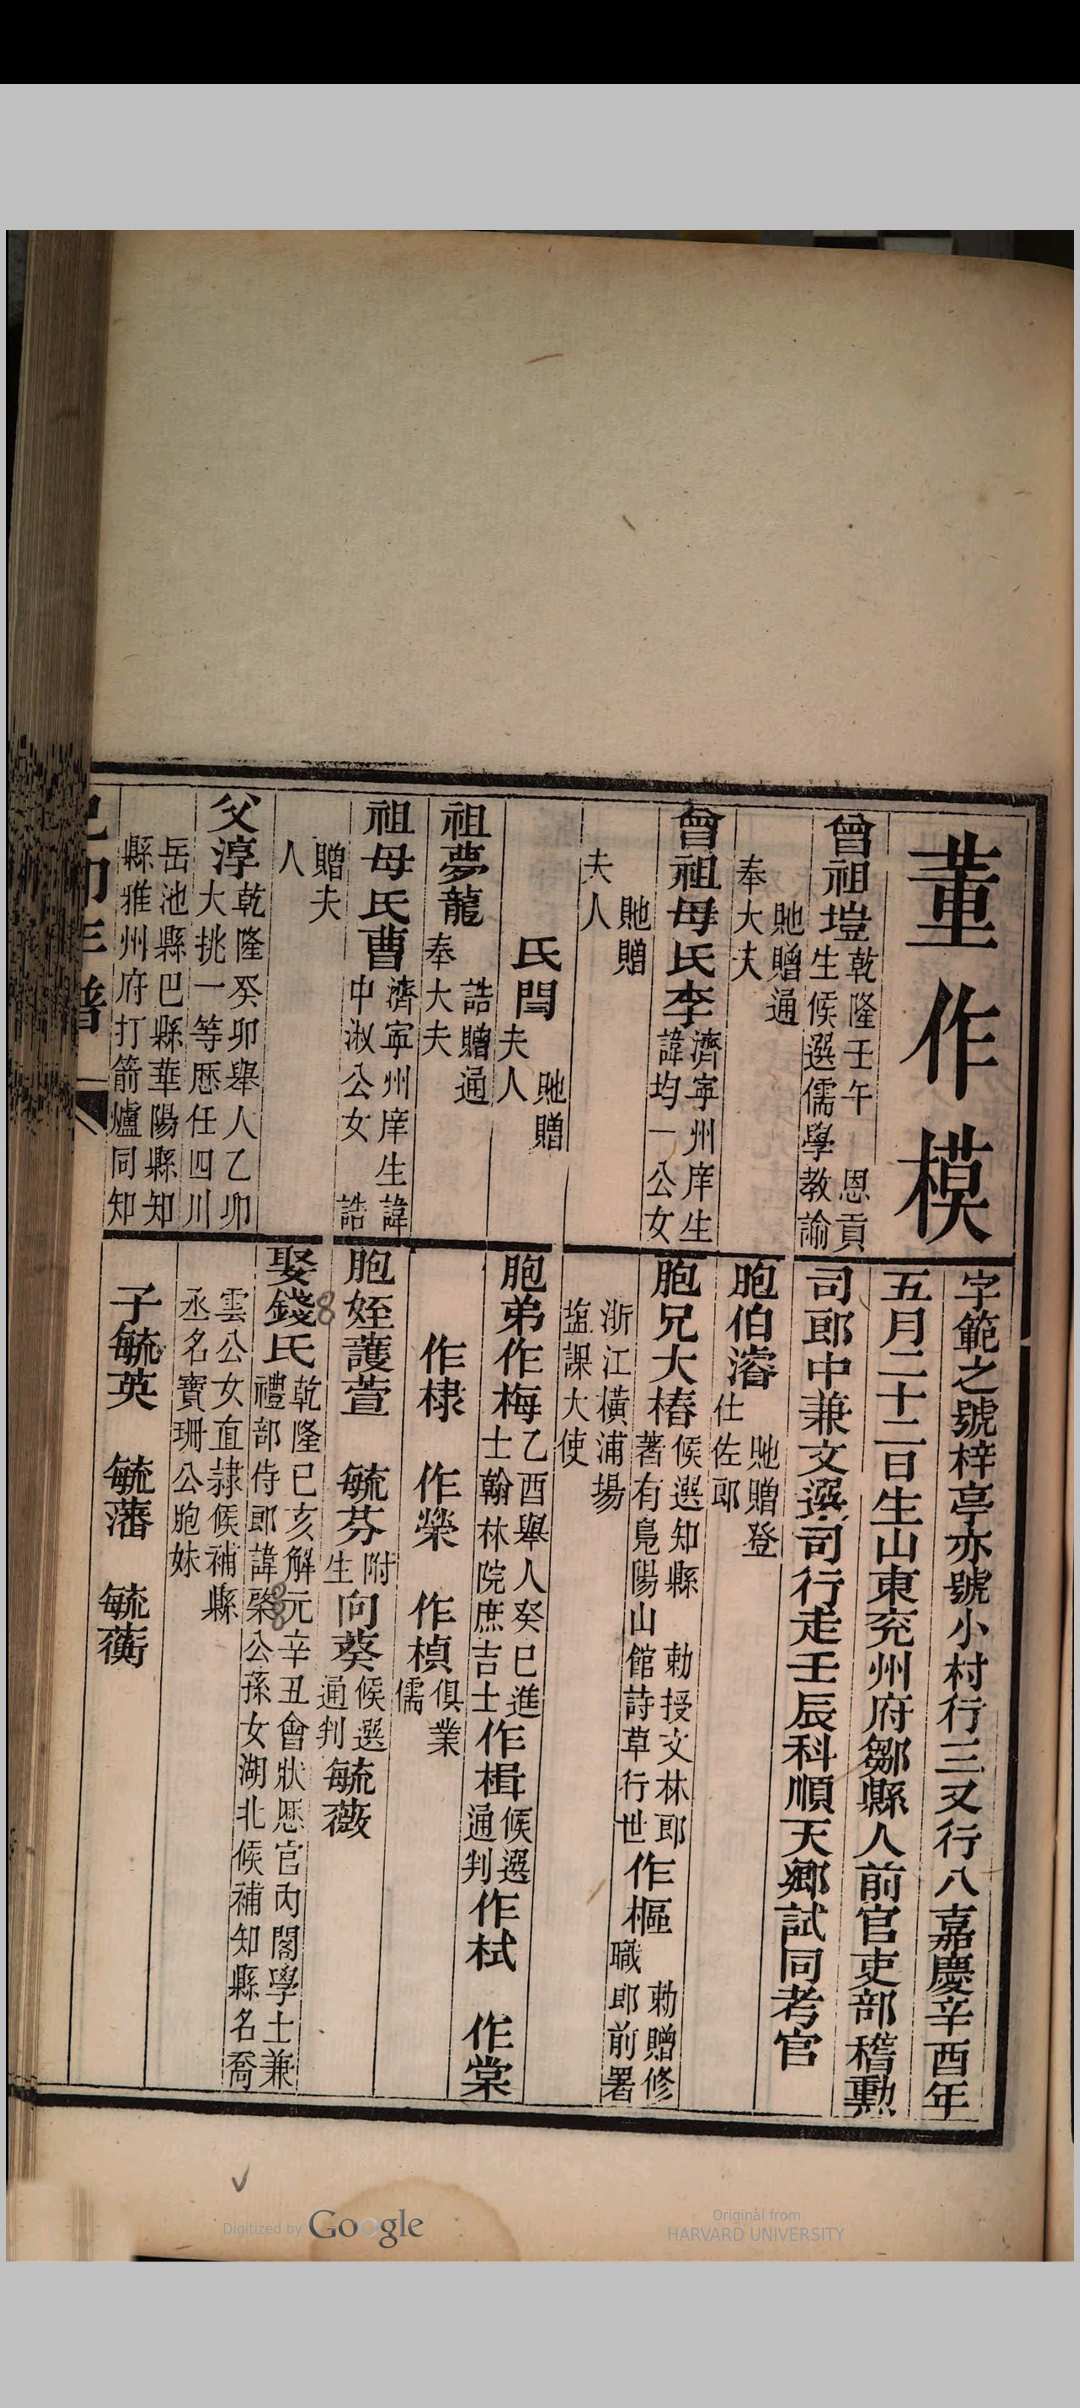 董作模
字範之號梓亭亦號小村行三又行八嘉慶辛酉年
五月二十二日生山東兗州府鄒縣人前官吏部稽勳
司郎中兼文選司行走壬辰科順天鄉試同考官
曾祖塏乾隆壬午 恩貢
生候選儒學教諭
貤贈通
奉大夫
曾祖母氏李濟寧州庠生
諱均一公女
貤贈
夫人
氏閆
貤贈
夫人
祖夢龍
誥贈通
奉大夫
祖母氏曹濟寧州庠生諱
中淑公女 誥
贈夫
人
父淳乾隆癸卯舉人乙卯
大挑一等歷任四川
岳池縣巴縣華陽縣知
縣雅州府打箭爐同知
胞伯濬 貤贈登
仕佐郎
胞兄大椿候選知縣 勅授文林郎
著有鳧陽山館詩草行世
作樞 勅贈修
職郎前署
浙江橫浦場
塩課大使
胞弟作梅乙酉舉人癸巳進
士翰林院庶吉士
作楫候選
通判
作栻 作棠
作棣 作榮 作楨俱業
儒
胞姪護萱 毓芬附
生
向葵候選
通判
毓薇
娶錢氏乾隆己亥解元辛丑會狀歷官內閣學士兼
禮部侍郎諱棨公孫女湖北候補知縣名喬
雲公女直隷候補縣
丞名寶珊公胞妹
子毓英 毓藩 毓蘅
Digitized by Google
Original from
HARVARD UNIVERSITY